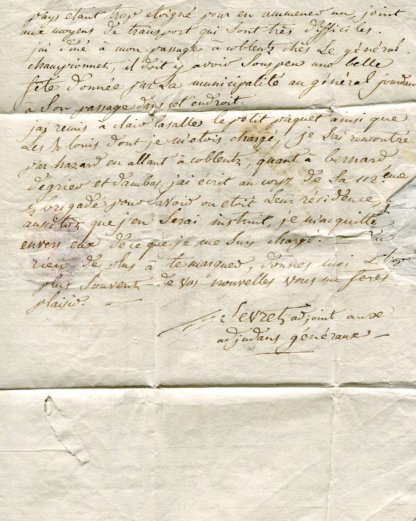 pays etant trop eloigné pour en ammener un, joint
aux moyens de transport qui sont très difficiles.
j'ai diné a mon passage a coblentz chés Le général
championnet, il doit y avoir sous peu une belle
fête donnée par La municipalité au général pendant
a Son passage dans cet endroit
j'ai remis a clair lasalle le petit paquet ainsi que
Les louis dont je m'etois chargé, je L'ai rencontré
par hazard en allant à coblentz, quant a bernard
et dambos, j'ai ecrit au corps de La 112.eme
1/2 brigade pour Savoir ou etoit Leur résidence
aussitot que j'en Serai instruit, je m'aquitterai
envers eux de ce que je me Suis chargé.
rien de plus à te marquer, donnes moi Le
plus Souvent de vos nouvelles vous me feres
plaisir.
Sevret adjoint aux
adjudans généraux